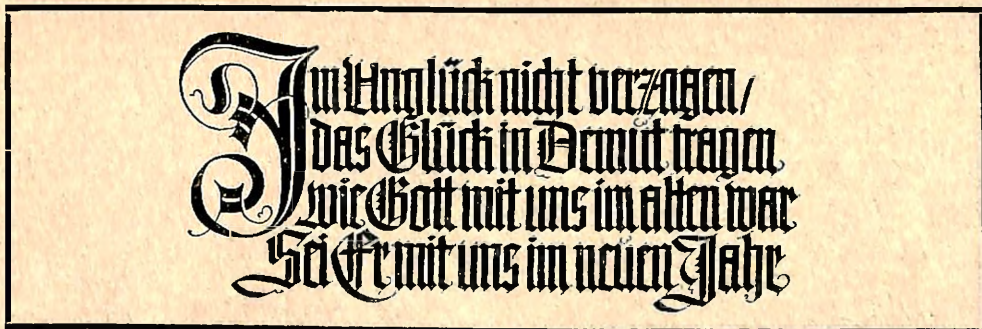 Im Unglück nicht verzagen/
das Glück in Demut tragen
wie Gott mit uns im alten war
Sei Er mit uns im neuen Jahr